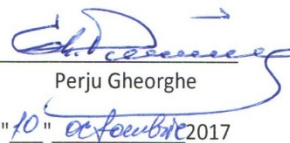 Perju Gheorghe
"10" octombrie 2017